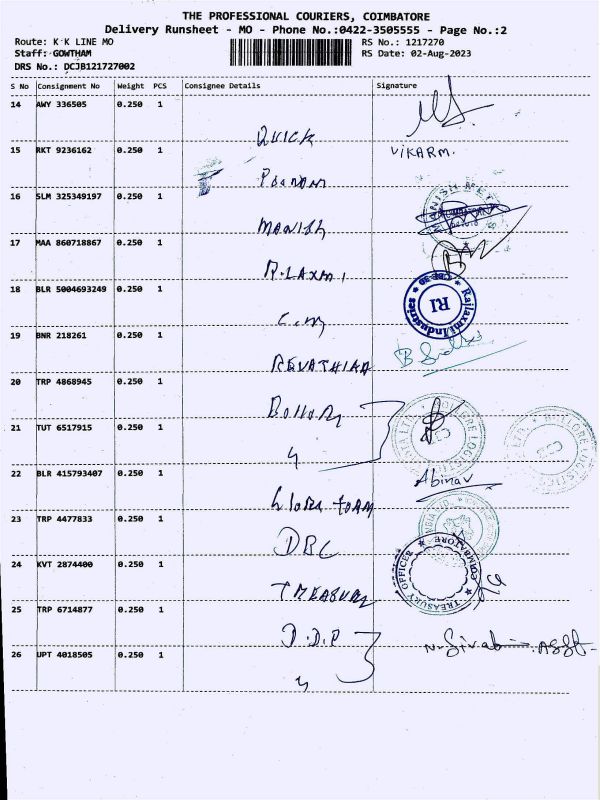 THE PROFESSIONAL COURIERS, COIMBATORE
Delivery Runsheet - MO - Phone No.:0422-3505555 - Page No.:2
Route: K K LINE MO
RS No.: 1217270
Staff: GOWTHAM
RS Date: 02-Aug-2023
DRS No.: DCJB121727002
S No Consignment No Weight PCS Consignee Details Signature
14 AWY 336505 0.250 1 QUICK
15 RKT 9236162 0.250 1 Poonam VIKARM.
16 SLM 325349197 0.250 1 MANISH
17 MAA 860718867 0.250 1 R.LAXMI
18 BLR 5004693249 0.250 1 Rajlaxmi Industries RI
19 BNR 218261 0.250 1 REVATHIAA
20 TRP 4868945 0.250 1
21 TUT 6517915 0.250 1 ״
22 BLR 415793407 0.250 1 Abinav
23 TRP 4477833 0.250 1 DBC
24 KVT 2874400 0.250 1 TREASURY TREASURY OFFICER COIMBATORE
25 TRP 6714877 0.250 1 D.D.P
26 UPT 4018505 0.250 1 ״